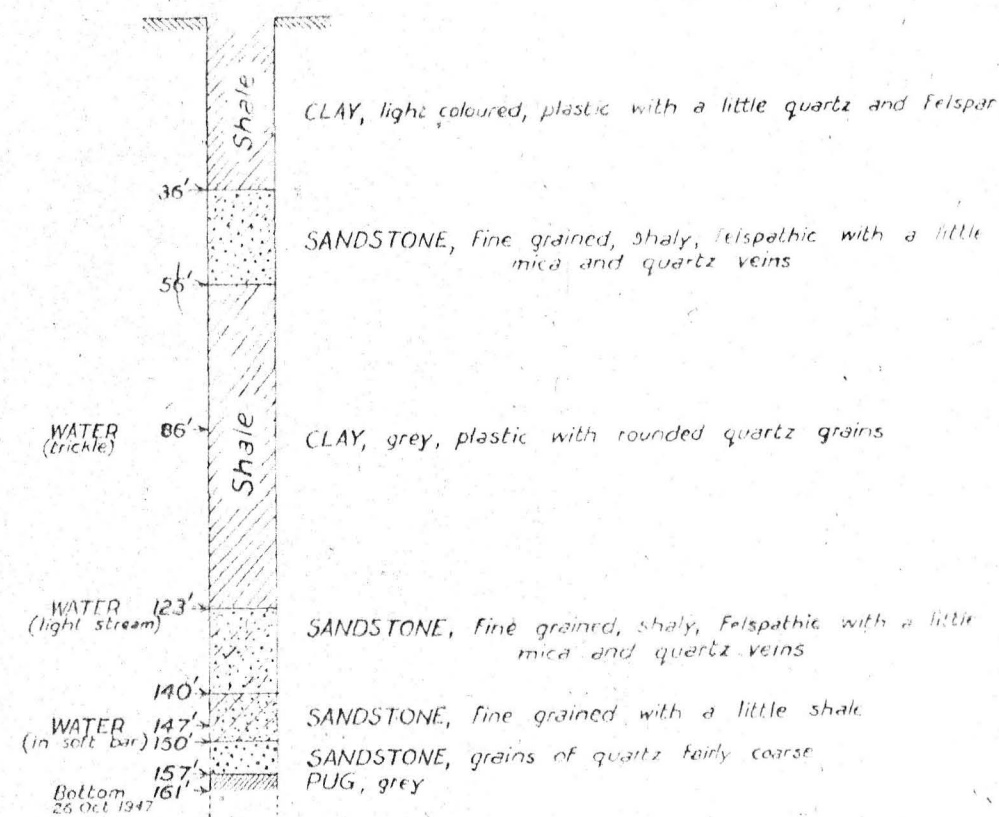 Shale
CLAY, light coloured, plastic with a little quartz and Felspar
36'
SANDSTONE, Fine grained, shaly, felspathic with a little
mica and quartz veins
56'
Shale
WATER 86'
(trickle)
CLAY, grey, plastic with rounded quartz grains
WATER 123'
(light stream)
SANDSTONE, Fine grained, shaly, Felspathic with a little
mica and quartz veins
140'
SANDSTONE, Fine grained with a little shale
WATER 147'
(in soft bar) 150'
SANDSTONE, grains of quartz fairly coarse
157'
PUG, grey
Bottom 161'
26 Oct 1947